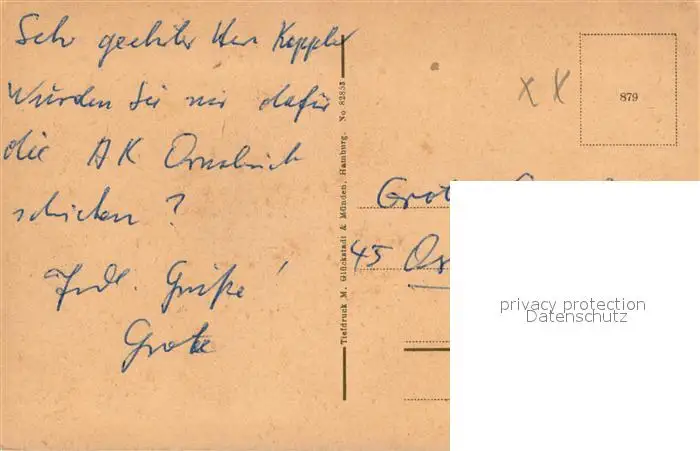 Sehr geehrter Herr Keppler
Würden Sie mir dafür
die AK Osnabrück
schicken?
Frdl. Grüße!
Grote
Tiefdruck M. Glückstadt & Münden, Hamburg. No 82855
X X
879
Grote
45 Os
privacy protection
Datenschutz